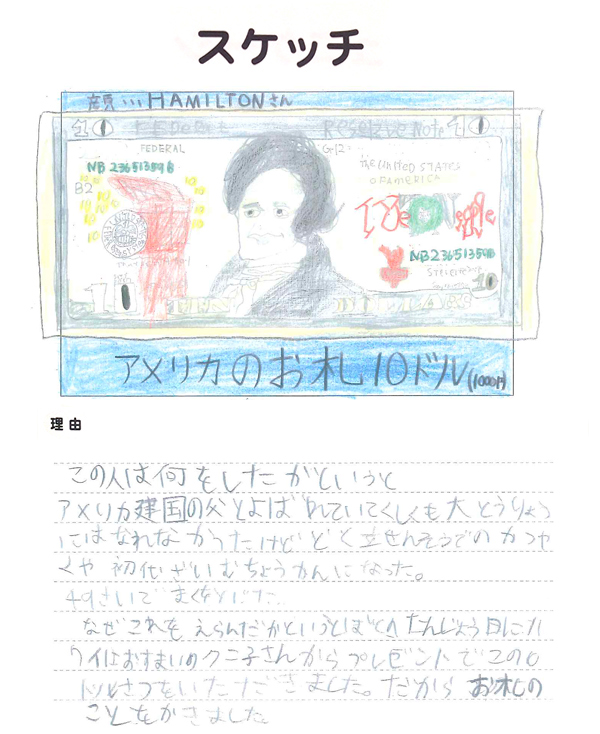 スケッチ
顔…HAMILTONさん
10 FEDERAL RESERVE NOTE 10
FEDERAL
NB23651359B
B2
G12
THE UNITED STATES
OF AMERICA
We People
NB23651359B
10
アメリカのお札10ドル(1000円)
理由
この人は何をしたかというと
アメリカ建国の父とよばれていてくしくも大とうりょう
にはなれなかったけどどく立せんそうでのかつや
くや初代ざいむちょうかんになった。
49さいでまくをとじた。
なぜこれをえらんだかというとぼくのたんじょう日にハ
ワイにおすまいのクニ子さんからプレゼントでこの10
ドルさつをいただきました。だからお札の
ことをかきました。